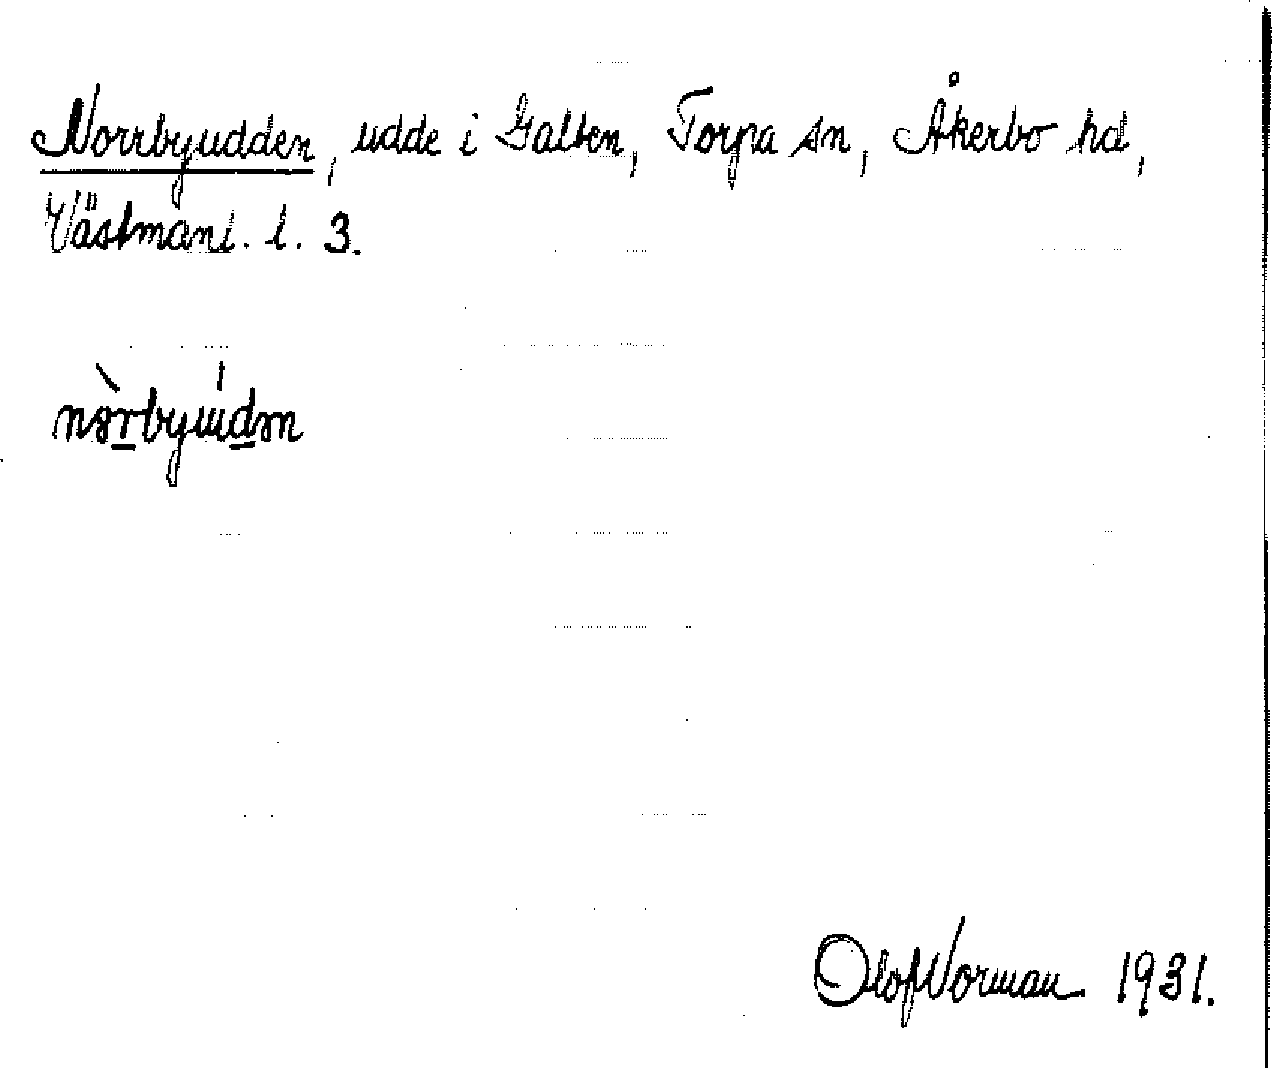 Norrbyudden, udde i Galten, Torpa sn, Åkerbo hd,
Västmanl. l. 3.
Olof Norman 1931.